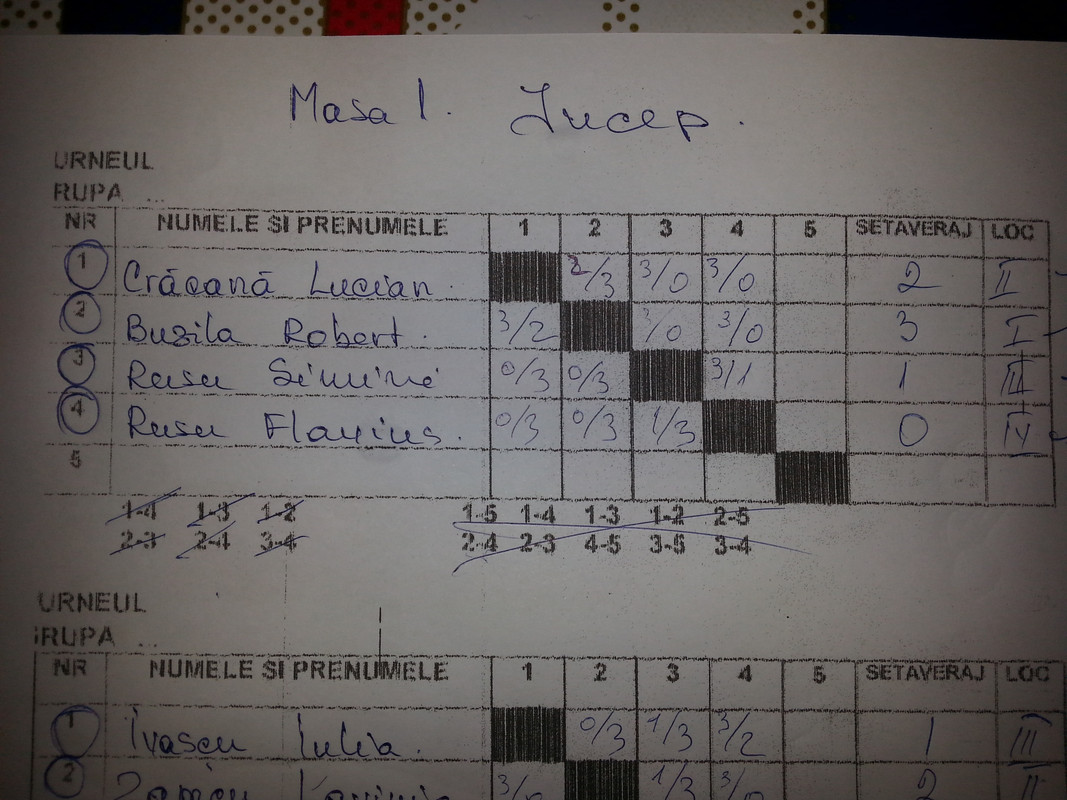 Masa 1. Incep.
URNEUL
RUPA ...
NR NUMELE SI PRENUMELE 1 2 3 4 5 SETAVERAJ LOC
1 Crăcană Lucian. 2/3 3/0 3/0 2 II
2 Buzila Robert. 3/2 3/0 3/0 3 I
3 Rusu 0/3 0/3 3/1 1 III
4 Rusu Flavius. 0/3 0/3 1/3 0 IV
5
1-4 1-3 1-2 1-5 1-4 1-3 1-2 2-5
2-3 2-4 3-4 2-4 2-3 4-5 3-5 3-4
URNEUL
RUPA ...
NR NUMELE SI PRENUMELE 1 2 3 4 5 SETAVERAJ LOC
1 Ivascu Iulia. 0/3 1/3 3/2 1 III
2 1/3 2 II